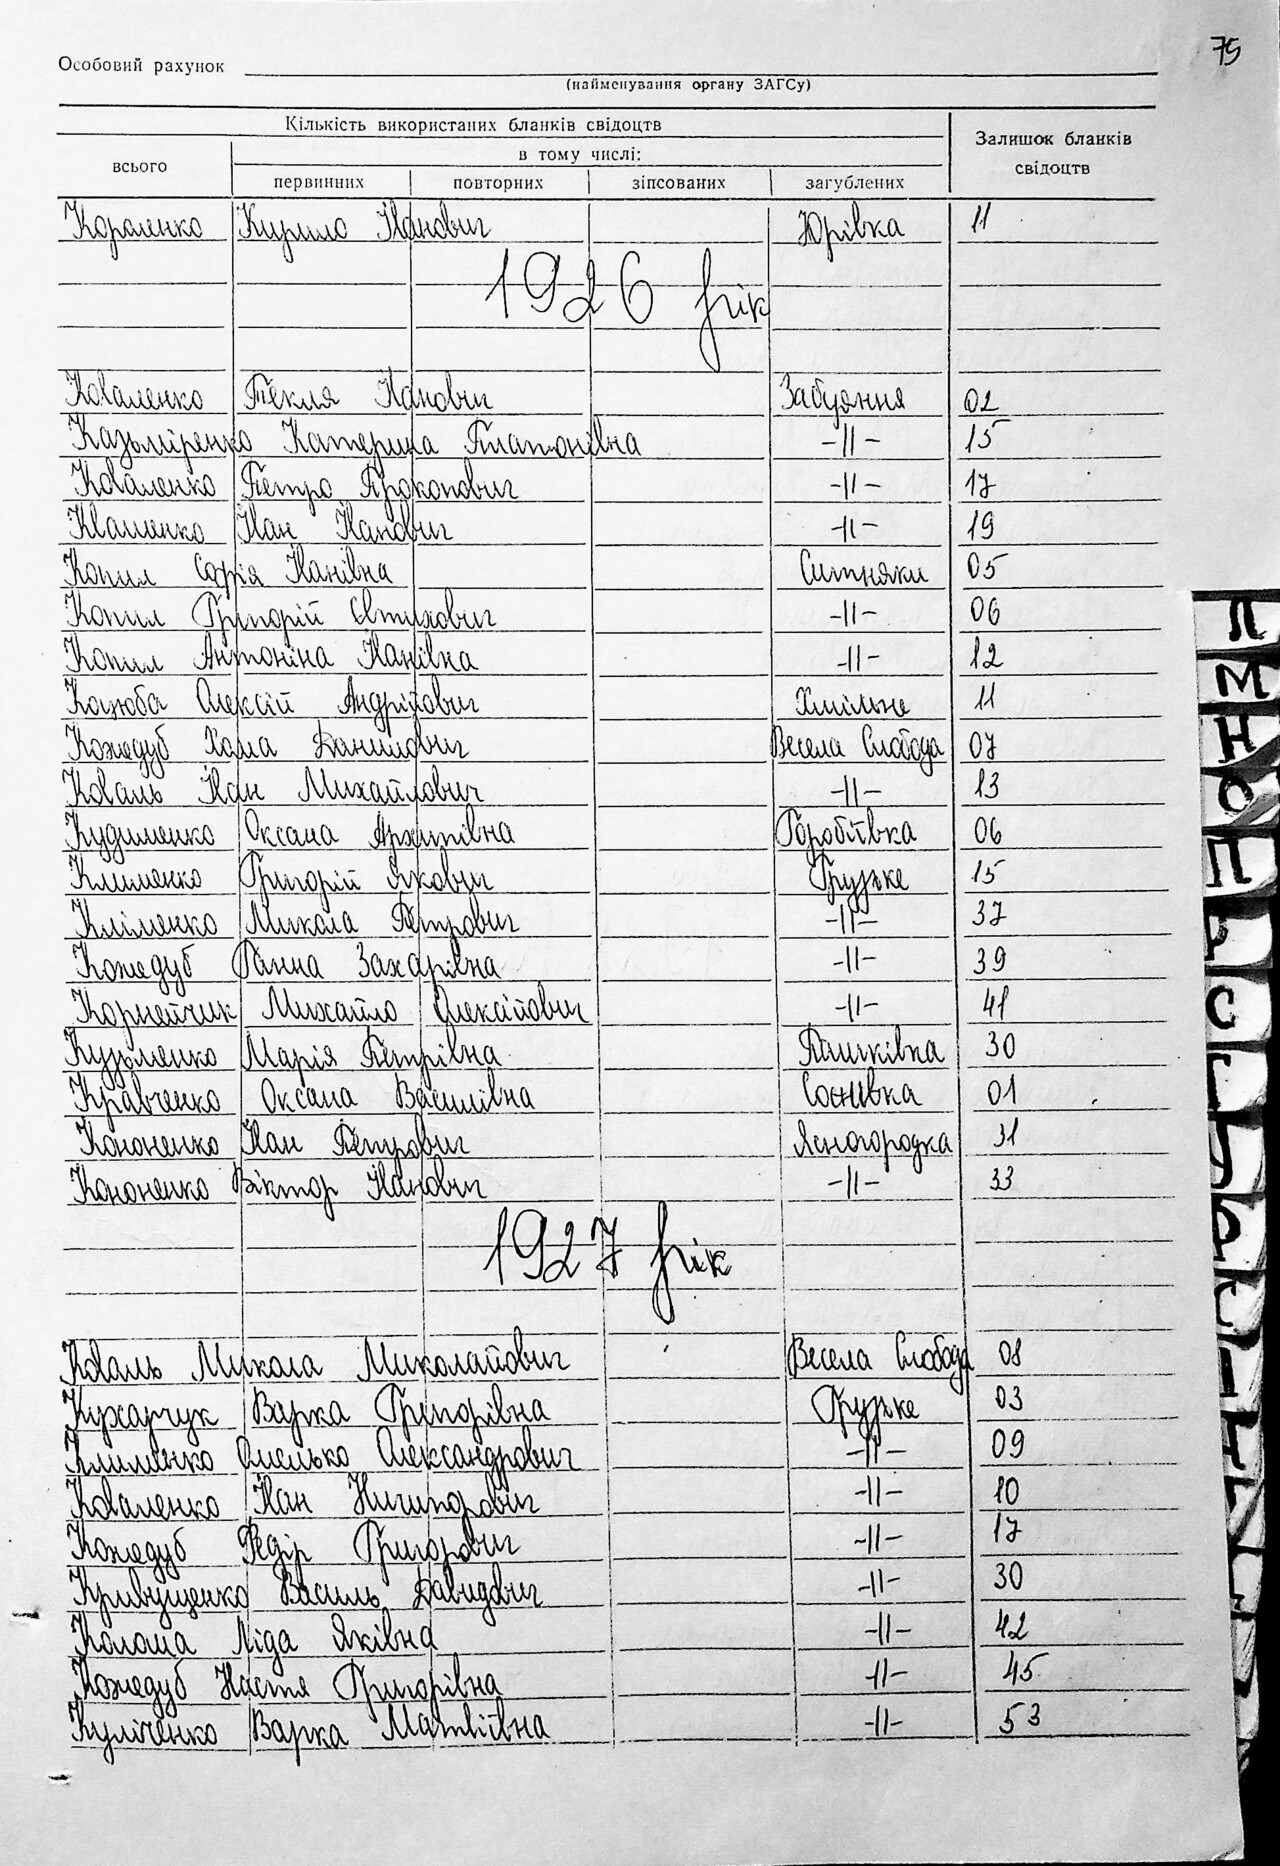 75
Особовий рахунок
(найменування органу ЗАГСу)
Кількість використаних бланків свідоцтв
Залишок бланків свідоцтв
всього
в тому числі:
первинних повторних зіпсованих загублених
Короленко Кирило Іванович Юрівка 11
1926 рік
Коваленко Текля Іванович Забуяння 02
Казьміренко Катерина Платонівна -//- 15
Коваленко Петро Прокопович -//- 17
Іван Іванович -//- 19
Копил Софія Іванівна Ситняки 05
Копил Григорій Євтихович -//- 06
Копил Антоніна Іванівна -//- 12
Коцюба Олексій Андрійович Хмільне 11
Кожедуб Хома Данилович Весела Слобода 07
Коваль Іван Михайлович -//- 13
Кудименко Оксана Архипівна Горобіївка 06
Клименко Григорій Якович Грузьке 15
Кліменко Микола Петрович -//- 37
Кожедуб Ганна Захарівна -//- 39
Корнейчик Михайло Олексійович -//- 41
Кузьменко Марія Петрівна Пашківка 30
Кравченко Оксана Василівна Соснівка 01
Кононенко Іван Петрович Ясногородка 31
Кононенко Віктор Іванович -//- 33
1927 рік
Коваль Микола Миколайович Весела Слобода 08
Кухарчук Варка Григорівна Грузьке 03
Клименко Омелько Олександрович -//- 09
Коваленко Іван Ничипорович -//- 10
Кожедуб Федір Григорович -//- 17
Кривущенко Василь Давидович -//- 30
Колоша Ліда Яківна -//- 42
Кожедуб Настя Григорівна -//- 45
Куліченко Варка Матвіївна -//- 53
Л
М
Н
О
П
С